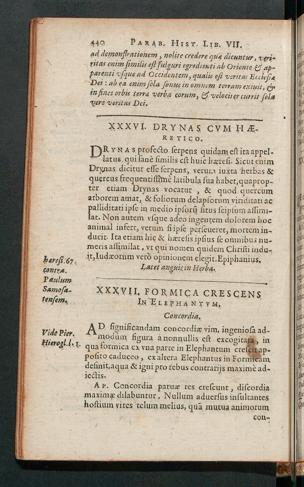 440 PARAB. HIST. LIB. VII.
ad demonstrationem, nolite credere quæ dicuntur, veri-
ritas enim similis est fulguri egredienti ab Oriente & ap-
parenti vsque ad Occidentem, qualis est veritas Ecclesiæ
Dei: ab ea enim sola sonus in omnem terram exiuit, &
in fines orbis terræ verba eorum, & velociter currit sola
vere veritas Dei.
XXXVI. DRYNAS CVM HÆ-
RETICO.
DRYNAS profecto serpens quidam est ita appel-
latus, qui sanè similis est huic hæresi. Sicut enim
Drynas dicitur esse serpens, iuxta herbas &
quercus frequentissimè latibula sua habet, quaprop-
ter etiam Drynas vocatur, & quod quercum
arborem amat, & foliorum delapsorum viriditati ac
palliditati ipse in medio ipsorum situs seipsum assimi-
lat. Non autem vsque adeo ingentem dolorem hoc
animal infert, verum si ipse perseueret, mortem in-
ducit. Ita etiam hic & hæresis ipsius se omnibus nu-
meris assimilat, vt qui nomen quidem Christi indu-
it, Iudæorum verò opinionem elegit. Epiphanius.
hæresi. 67.
contra
Paulum
Samosa-
tensem.
Latet anguis in Herba.
XXXVII. FORMICA CRESCENS
IN ELEPHANTVM,
Concordia.
AD significandam concordiæ vim, ingeniosa ad-
modum figura à nonnullis est excogitata, in
qua formica ex vna parte in Elephantum crescit, ap-
posito caduceo, ex altera Elephantus in Formicam
desinit, aqua & igni pro rebus contrariis maximè ad-
iectis.
Vide Pier.
Hierogl. l. 1.
AP. Concordia paruæ res crescunt, discordia
maximæ dilabuntur. Nullum aduersus insultantes
hostium vires telum melius, quā mutua animorum
con-